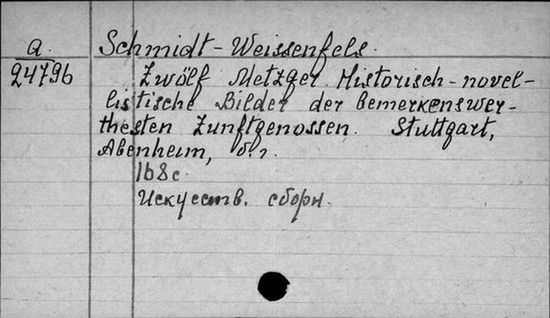 a
24796
Schmidt-Weissenfels.
Zwölf Metzger. Historisch-novel-
listische Bilder der bemerkenswer-
thesten Zunftgenossen. Stuttgart,
Abenheim, б.г.
168 с.
Искусств. сборн.